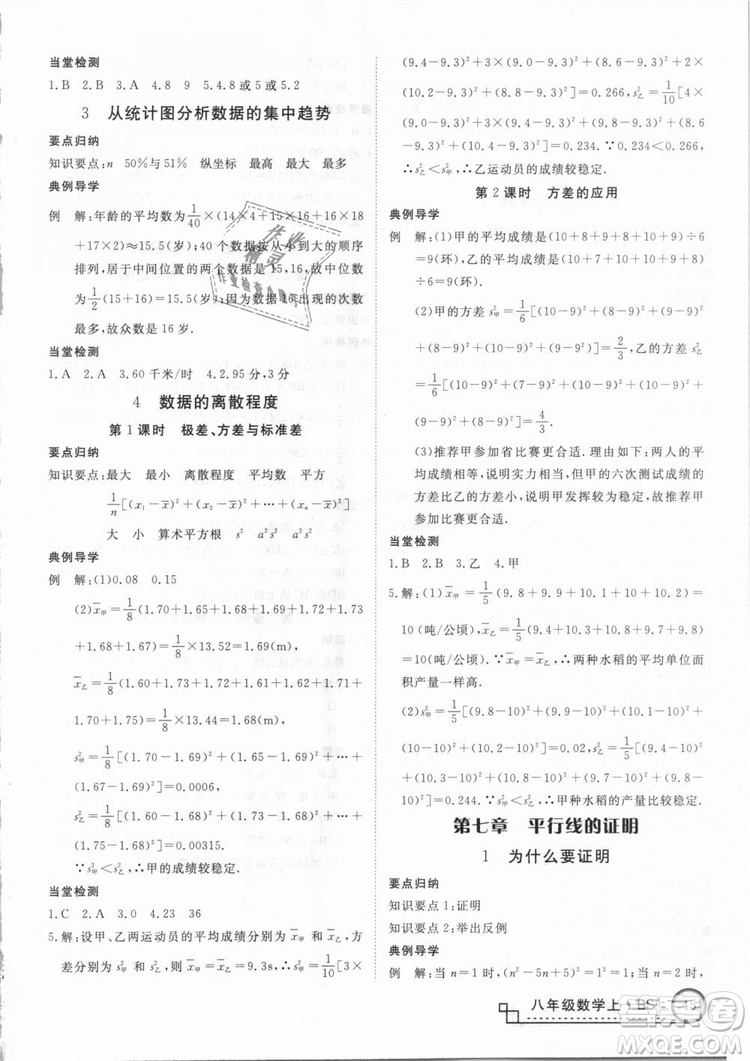 当堂检测
1.B 2.B 3.A 4.8 9 5.4.8或5或5.2
3 从统计图分析数据的集中趋势
要点归纳
知识要点:n 50%与51% 纵坐标 最高 最大 最多
典例导学
例 解:年龄的平均数为1/40×(14×4+15×16+16×18
+17×2)≈15.5(岁);40个数据按从小到大的顺序
排列,居于中间位置的两个数据为15,16,故中位数
为1/2(15+16)=15.5(岁);因为数据16出现的次数
最多,故众数为16岁.
当堂检测
1.A 2.A 3.60千米/时 4.2.95分,3分
4 数据的离散程度
第1课时 极差、方差与标准差
要点归纳
知识要点:最大 最小 离散程度 平均数 平方
1/n[(x₁-x̄)²+(x₂-x̄)²+…+(xₙ-x̄)²]
大 小 算术平方根 s² a²s² a²s²
典例导学
例 解:(1)0.08 0.15
(2)x̄甲=1/8(1.70+1.65+1.68+1.69+1.72+1.73
+1.68+1.67)=1/8×13.52=1.69(m),
x̄乙=1/8(1.60+1.73+1.72+1.61+1.62+1.71+
1.70+1.75)=1/8×13.44=1.68(m).
s²甲=1/8[(1.70-1.69)²+(1.65-1.69)²+…+
(1.67-1.69)²]=0.0006,
s²乙=1/8[(1.60-1.68)²+(1.73-1.68)²+…+
(1.75-1.68)²]=0.00315.
∵s²甲<s²乙,∴甲的成绩较稳定.
当堂检测
1.C 2.A 3.0 4.23 36
5.解:设甲、乙两运动员的平均成绩分别为x̄甲和x̄乙,方
差分别为s²甲和s²乙,则x̄甲=x̄乙=9.3s,s²甲=1/10[3×
(9.4-9.3)²+3×(9.2-9.3)²+(8.5-9.3)²+2×
(10-9.3)²+(9.6-9.3)²]=0.266,s²乙=1/10[4×
(9-9.3)²+(10.2-9.3)²+(8.8-9.3)²+3×
(9.4-9.3)²+(9.8-9.3)²]=0.154,
∵s²甲>s²乙,∴乙运动员的成绩较稳定.
第2课时 方差的应用
典例导学
例 解:(1)甲的平均成绩是(10+8+9+8+10+9)÷
6=9(环),乙的平均成绩是(10+7+10+10+9+8)
÷6=9(环).
(2)甲的方差s²甲=1/6[(10-9)²+(8-9)²+(9-9)²
+(8-9)²+(10-9)²+(9-9)²]=2/3,乙的方差s²乙
=1/6[(10-9)²+(7-9)²+(10-9)²+(10-9)²+
(9-9)²+(8-9)²]=4/3.
(3)推荐甲参加省比赛更合适.理由如下:两人的平
均成绩相等,说明实力相当,但甲的六次测试成绩的
方差比乙的方差小,说明甲发挥较为稳定,故推荐甲
参加比赛更合适.
当堂检测
1.B 2.B 3.乙 4.甲
5.解:(1)x̄甲=1/5(9.8+9.9+10.1+10+10.2)=
10(吨/公顷),x̄乙=1/5(9.4+10.3+10.8+9.7+9.8)
=10(吨/公顷).∵x̄甲=x̄乙,∴两种水稻的平均单位面
积产量一样高.
(2)s²甲=1/5[(9.8-10)²+(9.9-10)²+(10.1-
10)²+(10-10)²+(10.2-10)²]=0.02,s²乙=1/5[
(9.4-10)²+(10.3-10)²+(10.8-10)²+(9.7-
10)²+(9.8-10)²]=0.244.∵s²甲<s²乙,∴甲种水稻的产量比较稳定.
第七章 平行线的证明
1 为什么要证明
要点归纳
知识要点1:证明
知识要点2:举出反例
典例导学
例 解:当n=1时,(n²-5n+5)²=1²=1;当n=2时,
八年级数学上·BS
作业
精灵